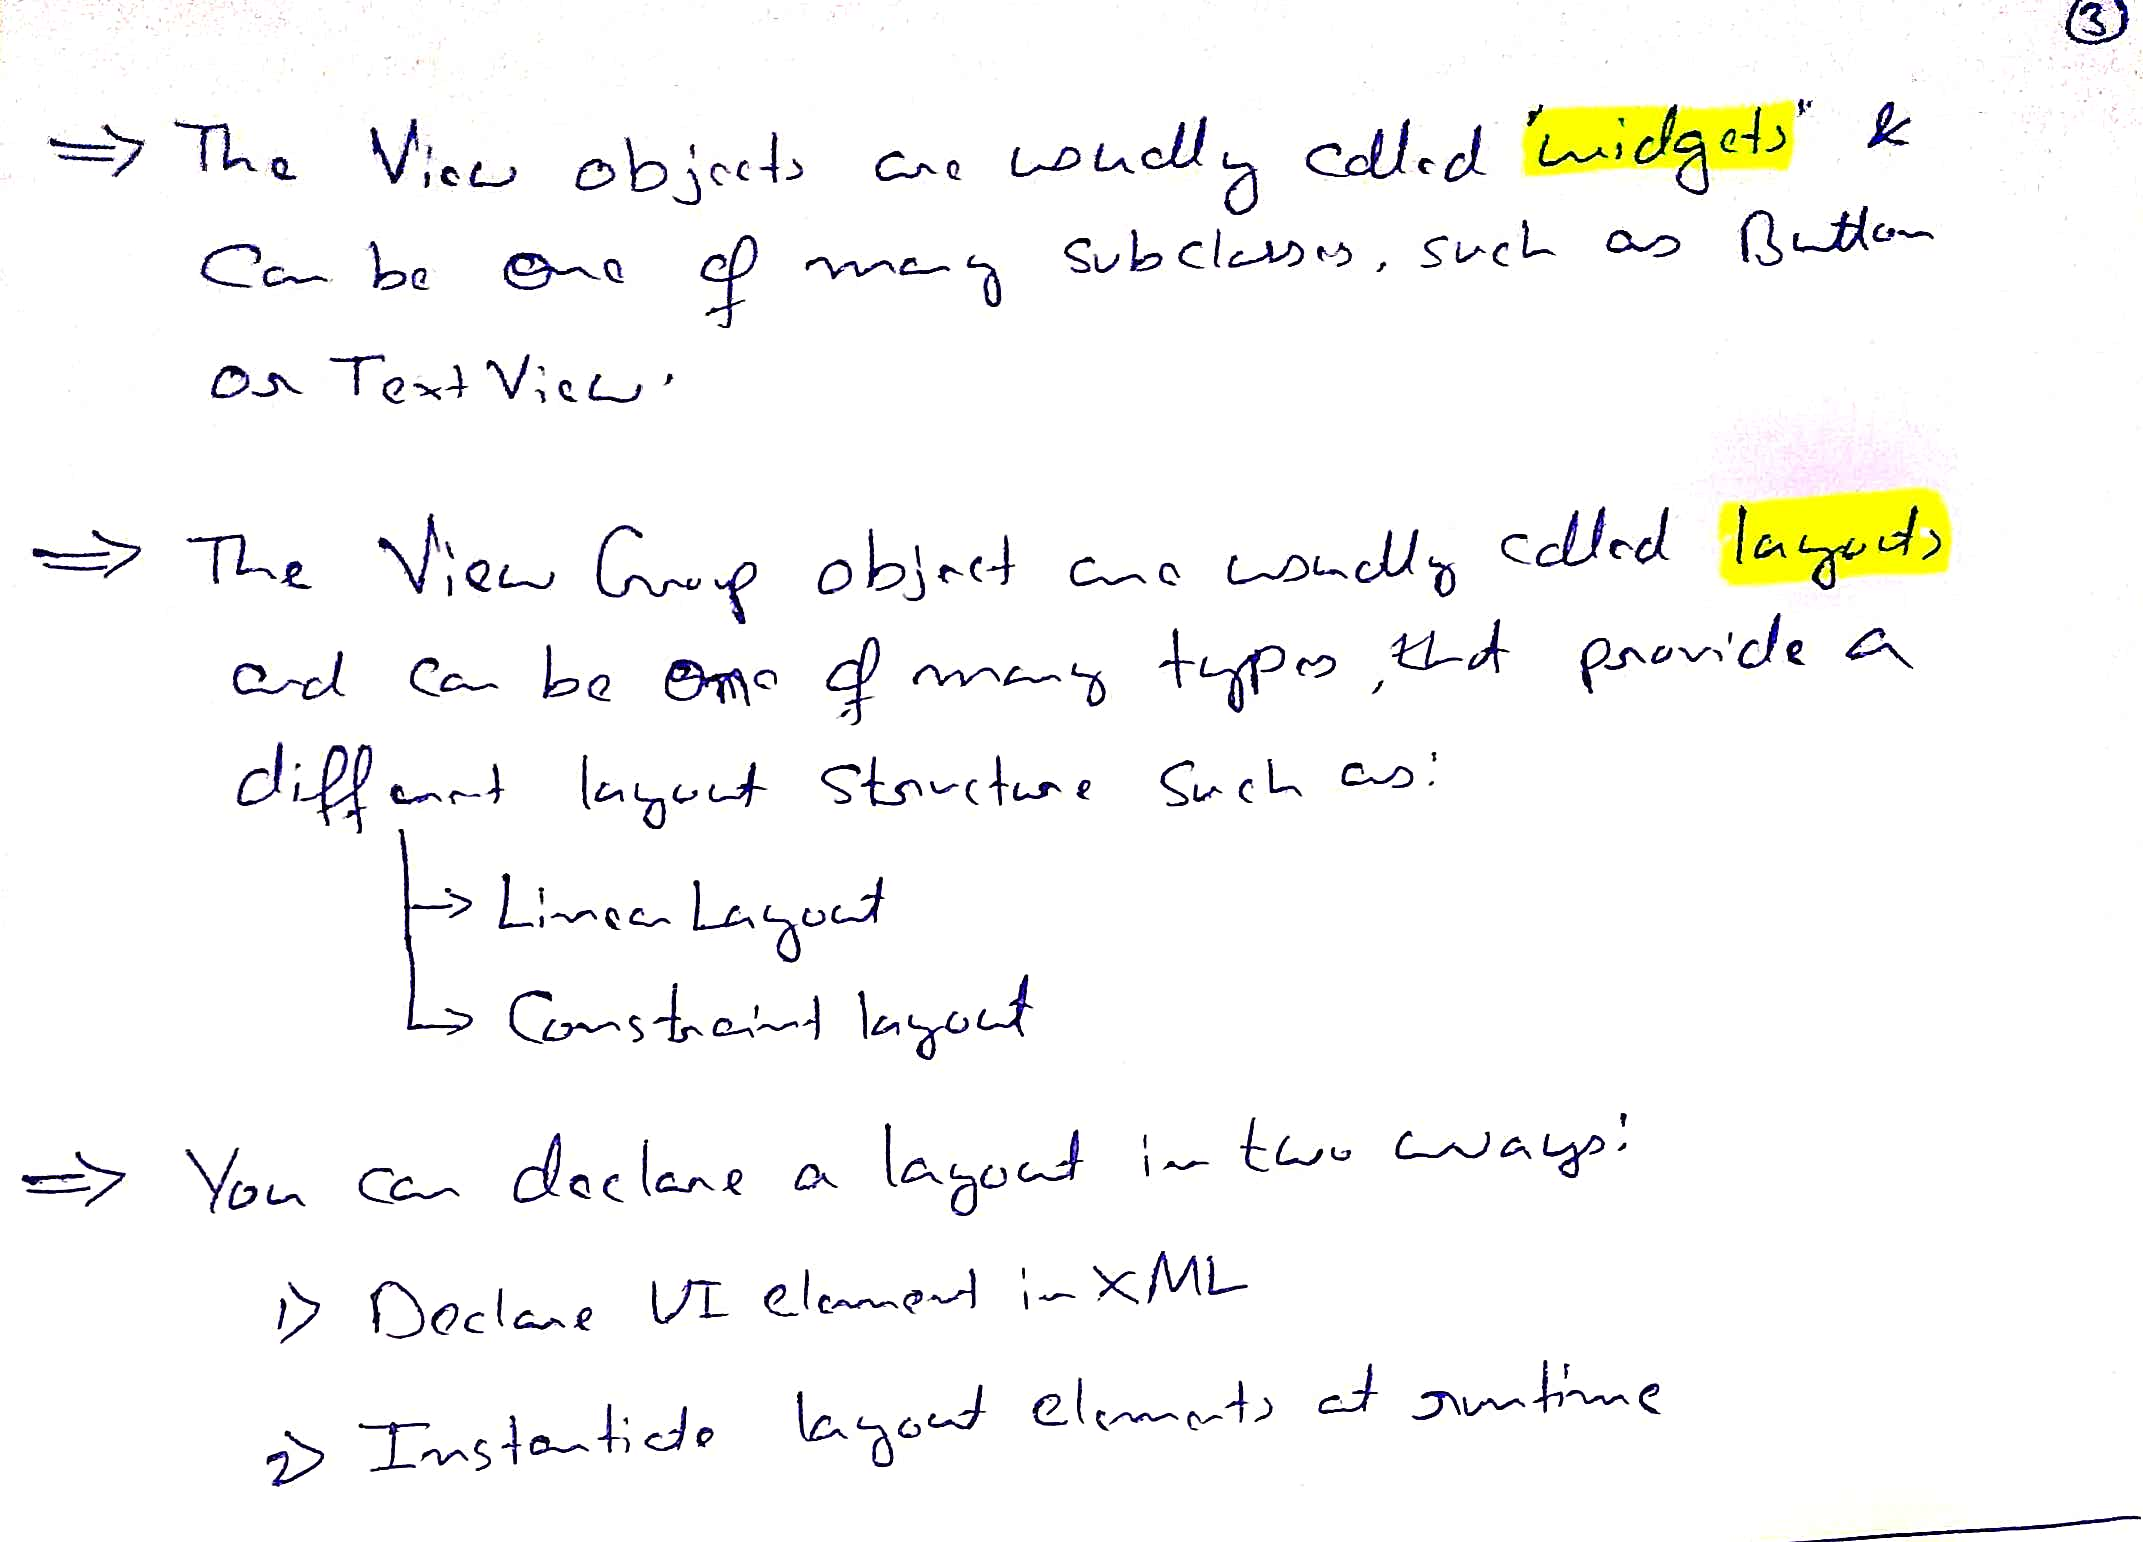 3
⇒ The View objects are usually called "widgets" &
Can be one of many subclasses, such as Button
or TextView.
⇒ The View Group object are usually called layouts
and can be one of many types, that provide a
different layout structure such as:
→ Linear Layout
→ Constraint layout
⇒ You can declare a layout in two ways:
1) Declare UI element in XML
2) Instantiate layout elements at runtime